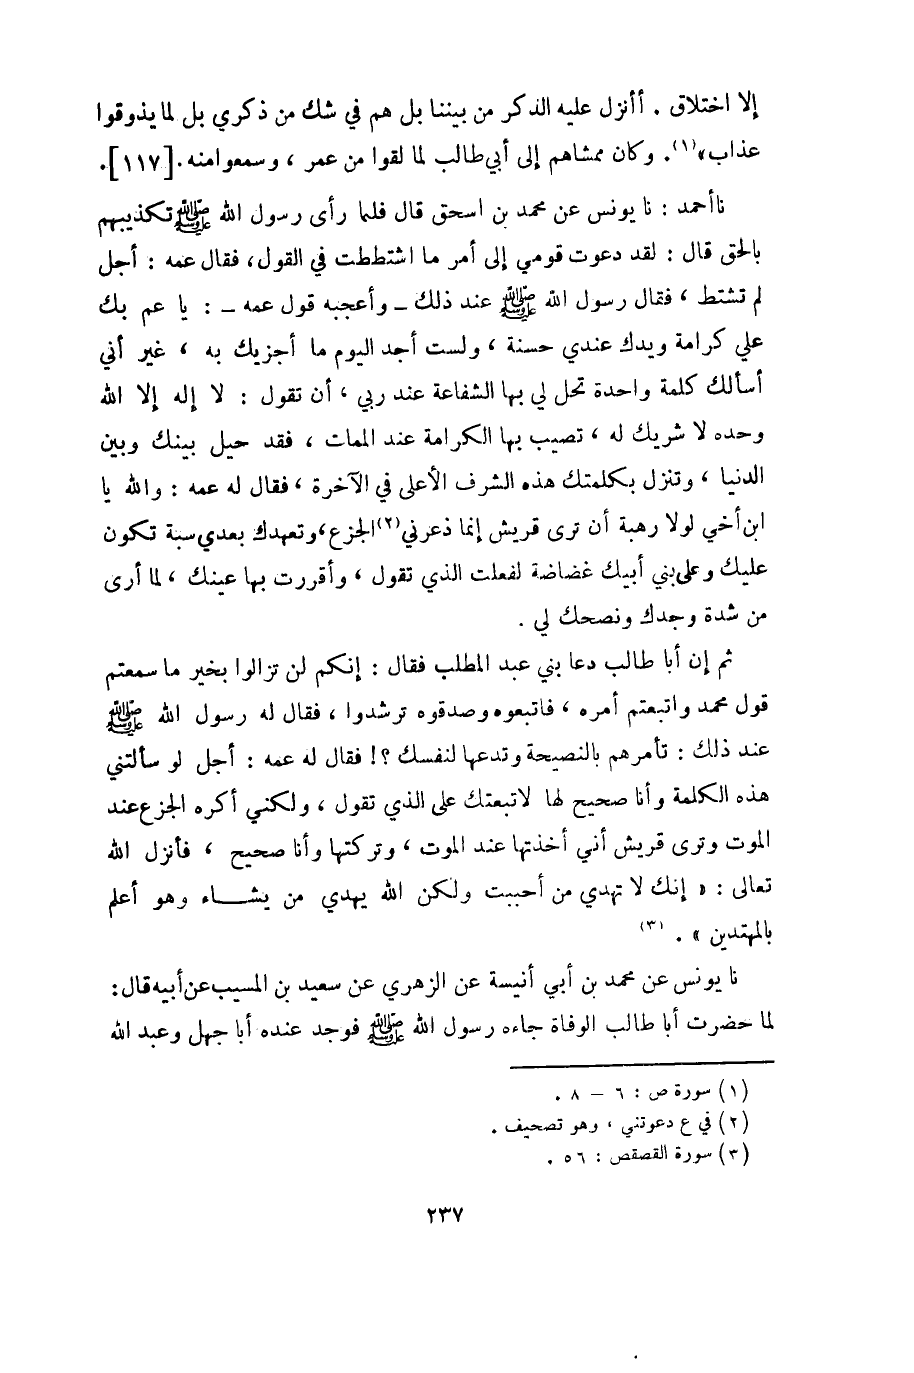 إلا اختلاق . أأنزل عليه الذكر من بيننا بل هم في شك من ذكري بل لما يذوقوا
عذاب»(١). وكان ممشاهم إلى أبي طالب لما لقوا من عمر ، وسمعوا منه .[١١٧].
نا أحمد : نا يونس عن محمد بن اسحق قال فلما رأى رسول الله ﷺ تكذيبهم
بالحق قال : لقد دعوت قومي إلى أمر ما اشتططت في القول، فقال عمه : أجل
لم تشتط ، فقال رسول الله ﷺ عند ذلك ـ وأعجبه قول عمه ـ : يا عم بك
علي كرامة ويدك عندي حسنة ، ولست أجد اليوم ما أجزيك به ، غير أني
أسألك كلمة واحدة تحل لي بها الشفاعة عند ربي ، أن تقول : لا إله إلا الله
وحده لا شريك له ، تصيب بها الكرامة عند الممات ، فقد حيل بينك وبين
الدنيا ، وتنزل بكلمتك هذه الشرف الأعلى في الآخرة ، فقال له عمه : والله يا
ابن أخي لولا رهبة أن ترى قريش إنما ذعرني(٢) الجزع، وتعهدك بعدي سبة تكون
عليك وعلى بني أبيك غضاضة لفعلت الذي تقول ، وأقررت بها عينك ، لما أرى
من شدة وجدك ونصحك لي .
ثم إن أبا طالب دعا بني عبد المطلب فقال : إنكم لن تزالوا بخير ما سمعتم
قول محمد واتبعتم أمره ، فاتبعوه وصدقوه ترشدوا ، فقال له رسول الله ﷺ
عند ذلك : تأمرهم بالنصيحة وتدعها لنفسك ؟! فقال له عمه : أجل لو سألتني
هذه الكلمة وأنا صحيح لها لاتبعتك على الذي تقول ، ولكني أكره الجزع عند
الموت وترى قريش أني أخذتها عند الموت ، وتركتها وأنا صحيح ، فأنزل الله
تعالى : « إنك لا تهدي من أحببت ولكن الله يهدي من يشـــاء وهو أعلم
بالمهتدين » . (٣)
نا يونس عن محمد بن أبي أنيسة عن الزهري عن سعيد بن المسيب عن أبيه قال :
لما حضرت أبا طالب الوفاة جاءه رسول الله ﷺ فوجد عنده أبا جهل وعبد الله
(١) سورة ص : ٦ – ٨ .
(٢) في ع دعوتني ، وهو تصحيف .
(٣) سورة القصقص : ٥٦ .
٢٣٧